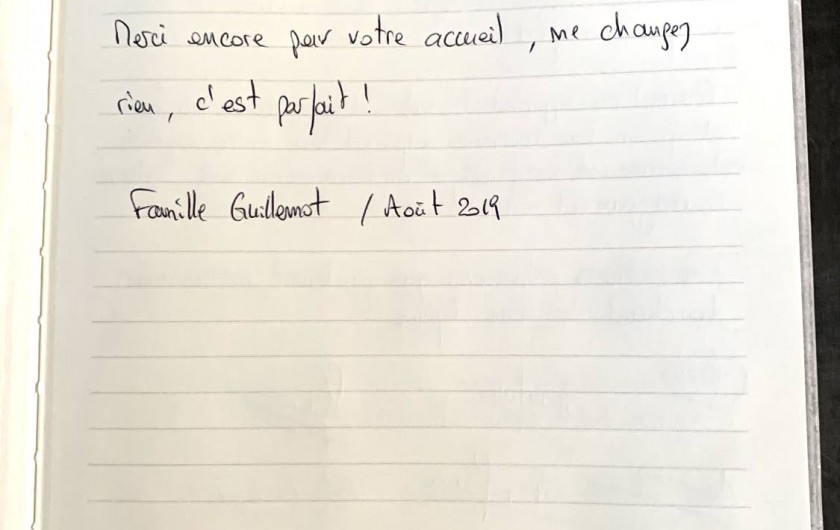 Merci encore pour votre accueil, ne changez
rien, c'est parfait !
Famille Guillemot / Août 2019